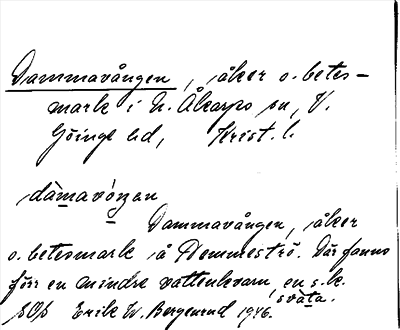 Dammavången, åker o. betes-
mark i N. Åkarps sn, V.
Göinge hd, Krist. l.
dàmavóŋan
Dammavången, åker
o. betesmark å Demmeströ. Där fanns
förr en mindre vattenkvarn, en s.k.
svàta.
Erik W. Bergenrud 1946.